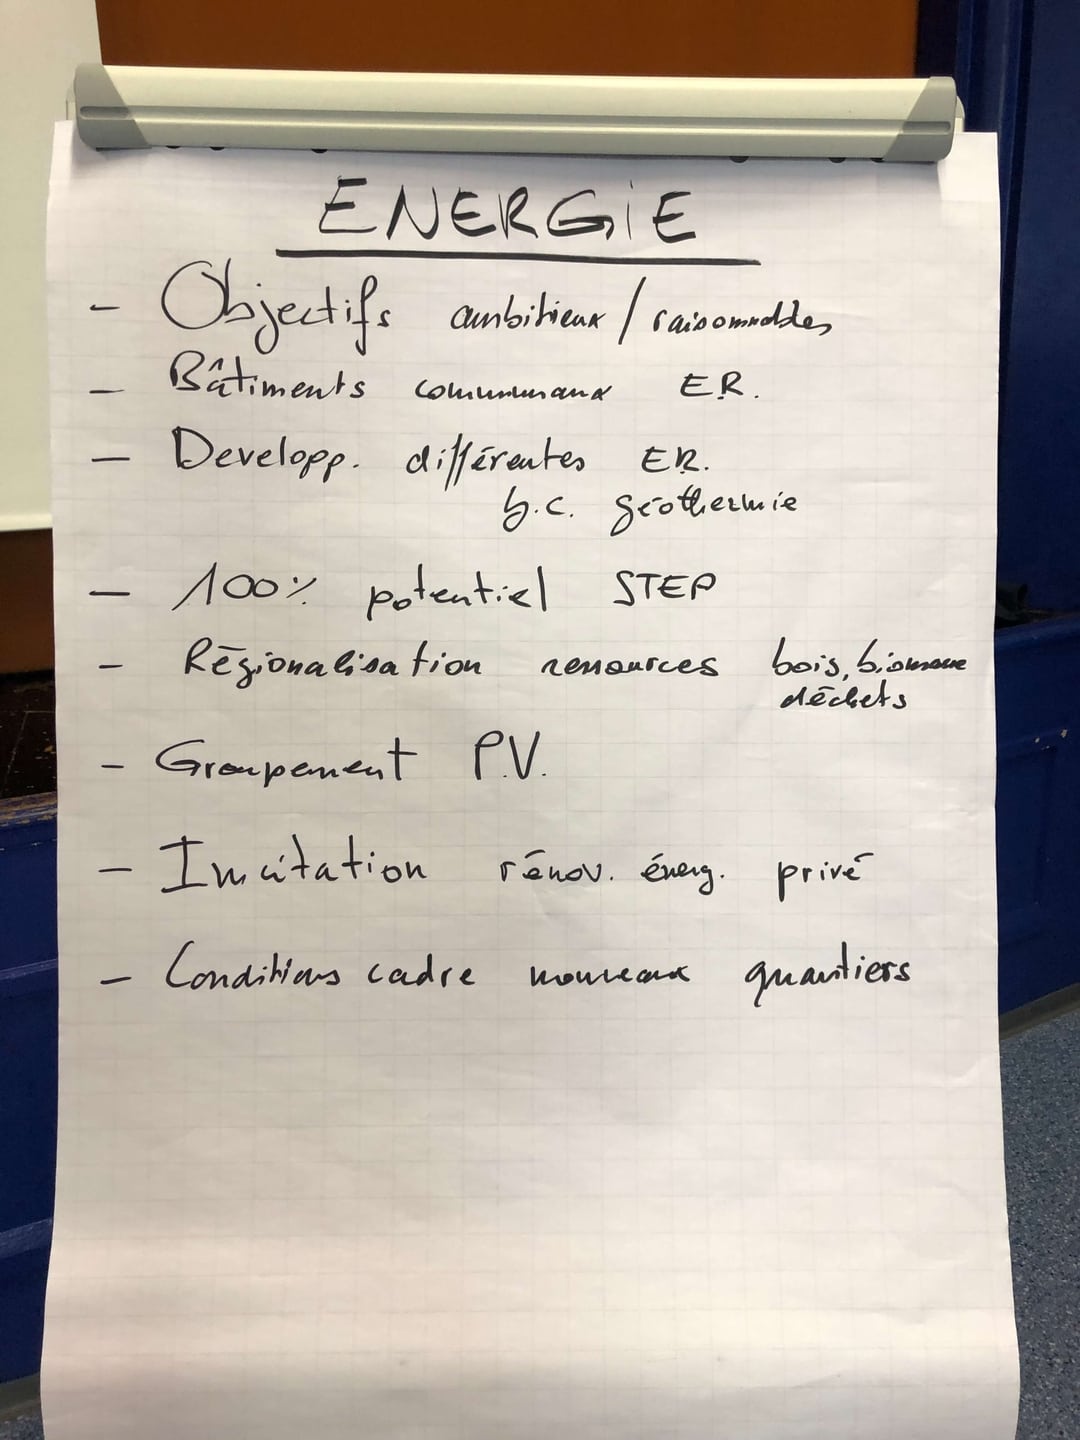 ENERGiE
- Objectifs ambitieux / raisonnables
- Bâtiments communaux E.R.
- Developp. différentes E.R.
y.c. géothermie
- 100% potentiel STEP
- Régionalisation ressources bois, biomasse
déchets
- Groupement P.V.
- Incitation rénov. énerg. privé
- Conditions cadre nouveaux quartiers